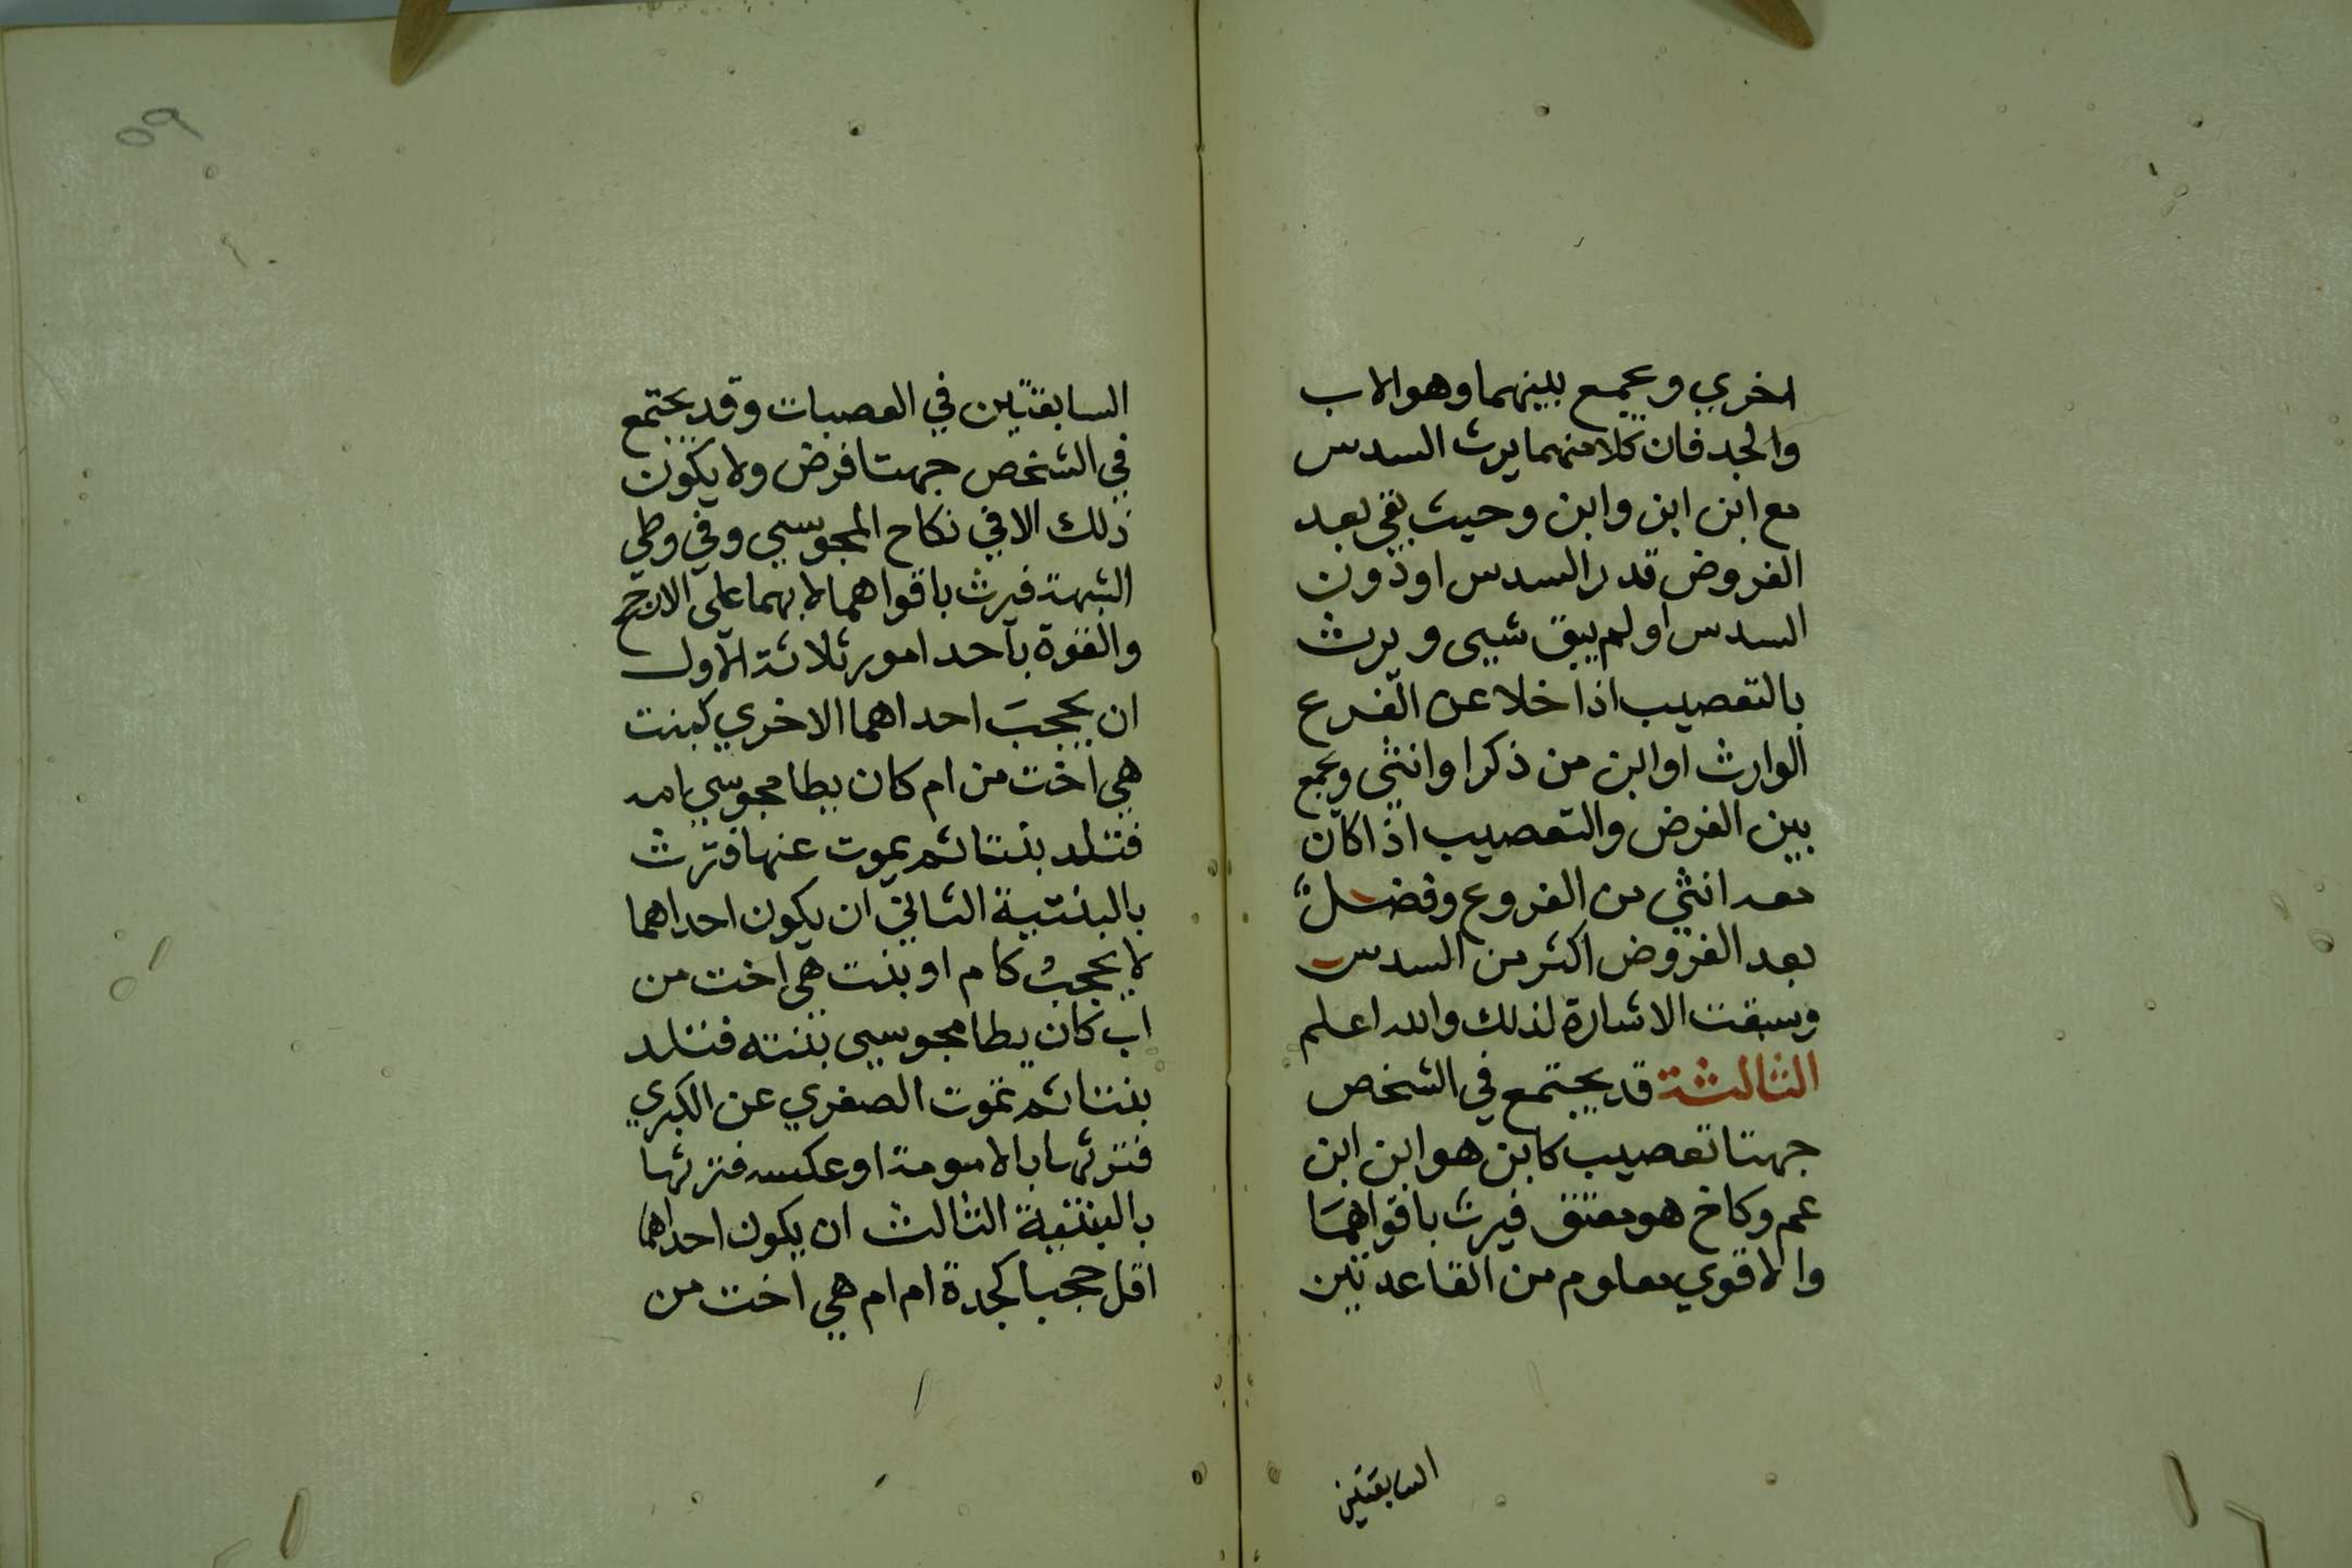 اخري ويجمع بينهما وهو الاب
والجد فان كلا منهما يرث السدس
مع ابن ابن وابن وحيث بقي بعد
الفروض قدر السدس او دون
السدس او لم يبق شيى ويرث
بالتعصيب اذا خلا عن الفرع
الوارث او ابن من ذكرا وانثي ويجمع
بين الفرض والتعصيب اذا كان
معه انثي من الفروع وفضل
بعد الفروض اكثر من السدس
وسبقت الاشارة لذلك والله اعلم
الثالثة قد يجتمع في الشخص
جهتا تعصيب كابن هو ابن ابن
عم وكاخ هو معتق فيرث باقواهما
والاقوي معلوم من القاعدتين
السابقتين
السابقتين في العصبات وقد يجتمع
في الشخص جهتا فرض ولا يكون
ذلك الا في نكاح المجوسي وفي وطي
الشبهة فيرث باقواهما لا بهما علي الارجح
والقوة باحد امور ثلاثة الاول
ان يحجب احداهما الاخري كبنت
هي اخت من ام كان يطا مجوسي امه
فتلد بنتا ثم يموت عنها فترث
بالبنتية الثاني ان يكون احداهما
لا يحجب كام او بنت هي اخت من
اب كان يطا مجوسيى بنته فتلد
بنتا ثم تموت الصغري عن الكبري
فترثها بالامومة او عكسه فترثها
بالبنتية الثالث ان يكون احداهما
اقل حجبا كجدة ام ام هي اخت من
٥٩